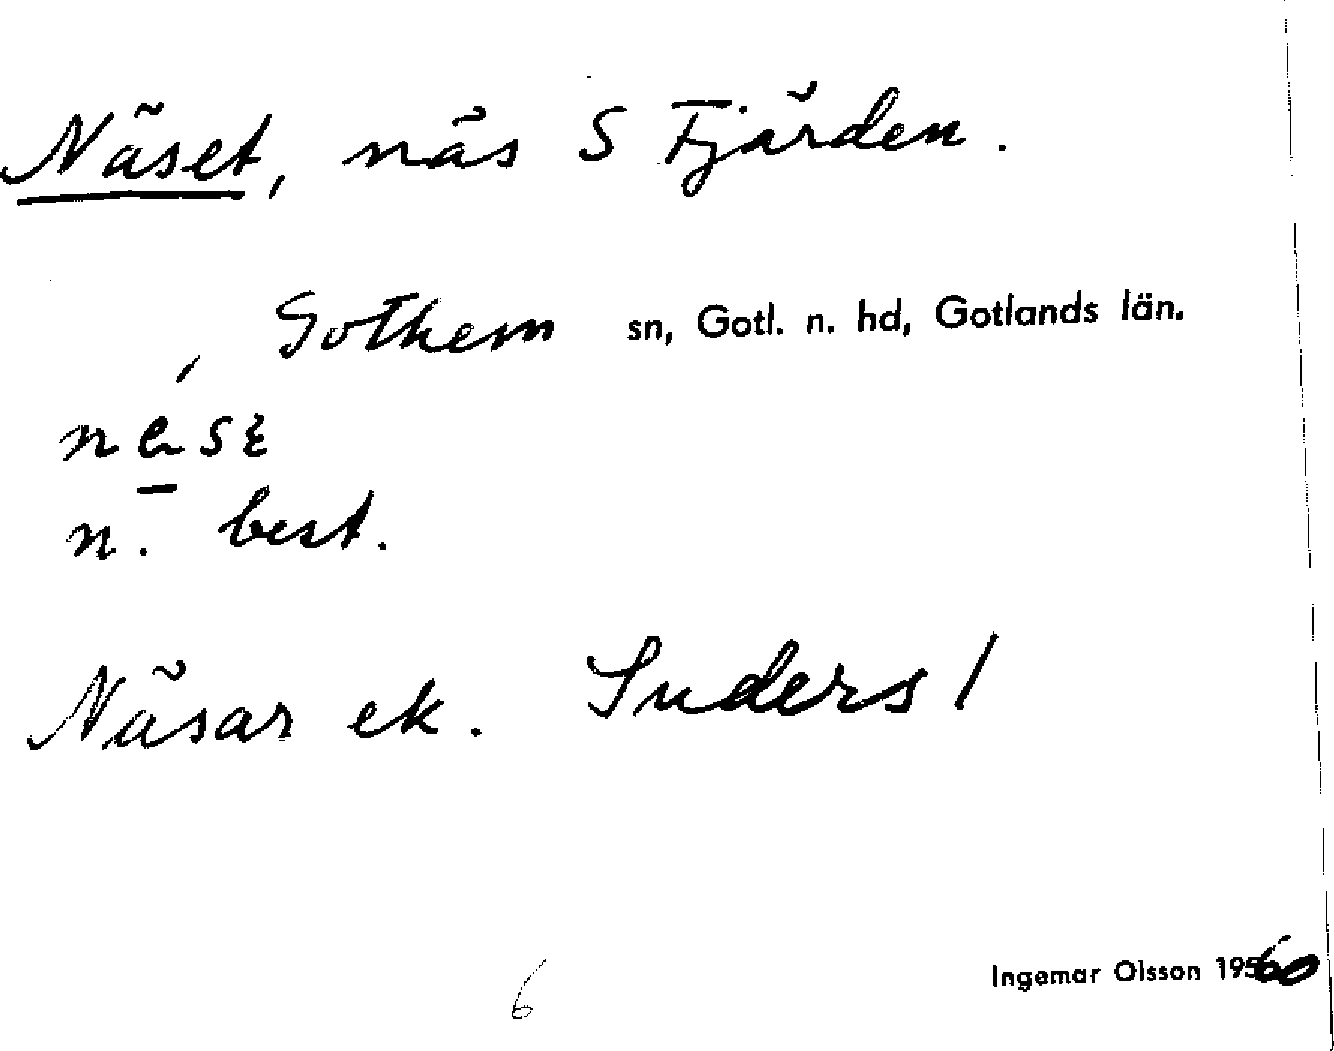 Näset, näs S Fjärden.
Gothem sn, Gotl. n. hd, Gotlands län.
n. best.
Näsar ek. Suders 1
6 Ingemar Olsson 1960